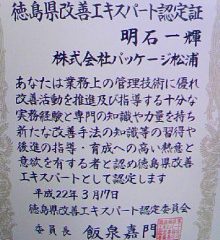 徳島県改善エキスパート認定証
明石一輝
株式会社パッケージ松浦
あなたは業務上の管理技術に優れ
改善活動を推進及び指導する十分な
実務経験と専門の知識や力量を持ち
新たな改善手法の知識等の習得や
後進の指導・育成への高い熱意と
意欲を有する者と認め徳島県改善
エキスパートとして認定します
平成22年3月17日
徳島県改善エキスパート認定委員会
委員長 飯泉嘉門